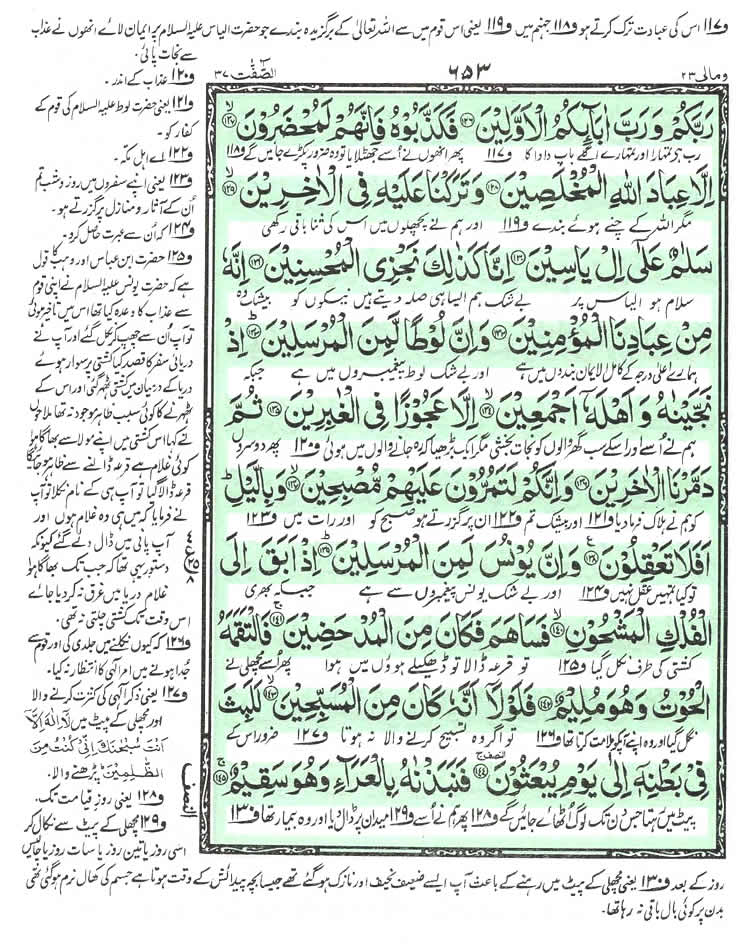 و۱۱۷ اس کی عبادت ترک کرتے ہو و۱۱۸ جہنم میں و۱۱۹ یعنی اس قوم میں سے اللہ تعالیٰ کے برگزیدہ بندے جو حضرت الیاس علیہ السلام پر ایمان لائے انھوں نے عذاب
سے نجات پائی۔
ومالی ۲۳
۶۵۳
الصّٰفّٰت ۳۷
رَبَّكُمْ وَرَبَّ اٰبَآىِٕكُمُ الْاَوَّلِیْنَ ﴿۱۲۶﴾ فَكَذَّبُوْهُ فَاِنَّهُمْ لَمُحْضَرُوْنَ ﴿۱۲۷﴾
رب ہے تمہارا اور تمہارے اگلے باپ دادا کا و۱۱۷ پھر انھوں نے اُسے جھٹلایا تو وہ ضرور پکڑے جائیں گے و۱۱۸
اِلَّا عِبَادَ اللّٰهِ الْمُخْلَصِیْنَ ﴿۱۲۸﴾ وَتَرَكْنَا عَلَیْهِ فِی الْاٰخِرِیْنَ ﴿۱۲۹﴾
مگر اللہ کے چنے ہوئے بندے و۱۱۹ اور ہم نے پچھلوں میں اس کی ثنا باقی رکھی
سَلٰمٌ عَلٰۤى اِلْ یَاسِیْنَ ﴿۱۳۰﴾ اِنَّا كَذٰلِكَ نَجْزِی الْمُحْسِنِیْنَ ﴿۱۳۱﴾ اِنَّهٗ
سلام ہو الیاس پر بے شک ہم ایسا ہی صلہ دیتے ہیں نیکوں کو بیشک وہ
مِنْ عِبَادِنَا الْمُؤْمِنِیْنَ ﴿۱۳۲﴾ وَاِنَّ لُوْطًا لَّمِنَ الْمُرْسَلِیْنَ ﴿۱۳۳﴾ اِذْ
ہمارے اعلیٰ درجہ کے کامل الایمان بندوں میں ہے اور بے شک لوط پیغمبروں میں ہے جبکہ
نَجَّیْنٰهُ وَاَهْلَهٗۤ اَجْمَعِیْنَ ﴿۱۳۴﴾ اِلَّا عَجُوْزًا فِی الْغٰبِرِیْنَ ﴿۱۳۵﴾ ثُمَّ
ہم نے اُسے اور اسکے سب گھر والوں کو نجات بخشی مگر ایک بڑھیا کہ رہ جانے والوں میں ہوئی و۱۲۰ پھر دوسروں
دَمَّرْنَا الْاٰخَرِیْنَ ﴿۱۳۶﴾ وَاِنَّكُمْ لَتَمُرُّوْنَ عَلَیْهِمْ مُّصْبِحِیْنَ ﴿۱۳۷﴾ وَبِالَّیْلِ ؕ
کو ہم نے ہلاک فرما دیا و۱۲۱ اور بیشک تم و۱۲۲ ان پر گزرتے ہو صبح کو اور رات میں و۱۲۳
اَفَلَا تَعْقِلُوْنَ ﴿۱۳۸﴾ وَاِنَّ یُوْنُسَ لَمِنَ الْمُرْسَلِیْنَ ﴿۱۳۹﴾ اِذْ اَبَقَ اِلَى
تو کیا تمہیں عقل نہیں و۱۲۴ اور بے شک یونس پیغمبروں سے ہے جبکہ بھری
الْفُلْكِ الْمَشْحُوْنِ ﴿۱۴۰﴾ فَسَاهَمَ فَكَانَ مِنَ الْمُدْحَضِیْنَ ﴿۱۴۱﴾ فَالْتَقَمَهُ
کشتی کی طرف نکل گیا و۱۲۵ تو قرعہ ڈالا تو ڈھکیلے ہوؤں میں ہوا پھر اسے مچھلی نے
الْحُوْتُ وَهُوَ مُلِیْمٌ ﴿۱۴۲﴾ فَلَوْلَاۤ اَنَّهٗ كَانَ مِنَ الْمُسَبِّحِیْنَ ﴿۱۴۳﴾ لَلَبِثَ
نگل گیا اور وہ اپنے آپکو ملامت کرتا تھا و۱۲۶ تو اگر وہ تسبیح کرنے والا نہ ہوتا و۱۲۷ ضرور اس کے
فِیْ بَطْنِهٖۤ اِلٰى یَوْمِ یُبْعَثُوْنَ ﴿۱۴۴﴾ فَنَبَذْنٰهُ بِالْعَرَآءِ وَهُوَ سَقِیْمٌ ﴿۱۴۵﴾
پیٹ میں رہتا جس دن تک لوگ اُٹھائے جائیں گے و۱۲۸ پھر ہم نے اُسے و۱۲۹ میدان پر ڈال دیا اور وہ بیمار تھا و۱۳۰
و۱۲۰ عذاب کے اندر۔
و۱۲۱ یعنی حضرت لوط علیہ السلام کی قوم کے
کفار کو۔
و۱۲۲ اے اہل مکہ۔
و۱۲۳ یعنی اپنے سفروں میں روز و شب تم
اُن کے آثار و منازل پر گزرتے ہو۔
و۱۲۴ کہ اُن سے عبرت حاصل کرو۔
و۱۲۵ حضرت ابن عباس اور وہب کا قول
ہے کہ حضرت یونس علیہ السلام نے اپنی قوم
سے عذاب کا وعدہ کیا تھا اس میں تاخیر ہوئی
تو آپ اُن سے چھپ کر نکل گئے اور آپ نے
دریائی سفر کا قصد کیا کشتی پر سوار ہوئے
دریا کے درمیان میں کشتی ٹھہر گئی اور اس کے
ٹھہرنے کا کوئی سبب ظاہر موجود نہ تھا ملاحوں
نے کہا اس کشتی میں اپنے مولا سے بھاگا ہوا
کوئی غلام ہے قرعہ ڈالنے سے ظاہر ہو جائیگا
قرعہ ڈالا گیا تو آپ ہی کے نام نکلا تو آپ
نے فرمایا کہ میں ہی وہ غلام ہوں اور
آپ پانی میں ڈال دیے گئے کیونکہ
دستور یہی تھا کہ جب تک بھاگا ہوا
غلام دریا میں غرق نہ کر دیا جائے
اس وقت تک کشتی چلتی نہ تھی۔
و۱۲۶ کہ کیوں نکلنے میں جلدی کی اور قوم سے
جُدا ہونے میں امر الٰہی کا انتظار نہ کیا۔
و۱۲۷ یعنی ذکر الٰہی کی کثرت کرنے والا
اور مچھلی کے پیٹ میں لَاۤ اِلٰهَ اِلَّاۤ
اَنْتَ سُبْحٰنَكَ اِنِّیْ كُنْتُ مِنَ
الظّٰلِمِیْنَ پڑھنے والا۔
و۱۲۸ یعنی روز قیامت تک۔
و۱۲۹ مچھلی کے پیٹ سے نکال کر
اسی روز یا تین روز یا سات روز یا چالیس
النصف
روز کے بعد و۱۳۰ یعنی مچھلی کے پیٹ میں رہنے کے باعث آپ ایسے ضعیف نحیف اور نازک ہو گئے تھے جیسا بچہ پیدائش کے وقت ہوتا ہے جسم کی کھال نرم ہو گئی تھی
بدن پر کوئی بال باقی نہ رہا تھا۔